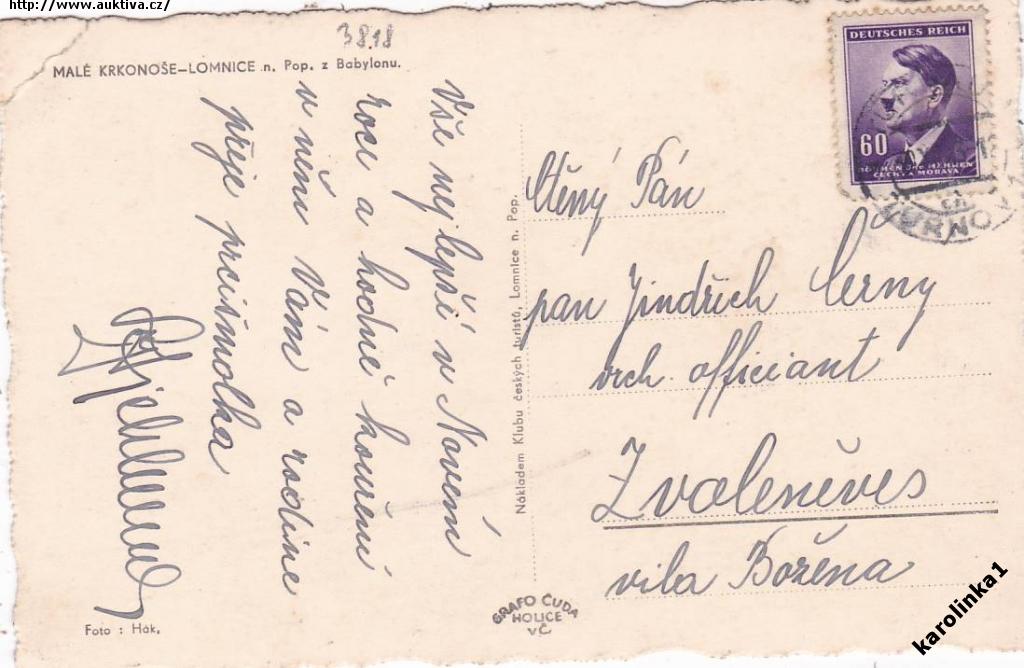 http://www.auktiva.cz/
3818
MALÉ KRKONOŠE–LOMNICE n. Pop. z Babylonu.
Vše nejlepší v Novém
roce a hodně kouření
v něm Vám a rodině
přeje
Foto : Hák.
Nákladem Klubu českých turistů, Lomnice n. Pop.
GRAFO ČUDA
HOLICE
v Č.
DEUTSCHES REICH
60
BÖHMEN UND MÄHREN
ČECHY A MORAVA
TURNOV
Ctěný Pán
pan Jindřich Černy
vrch officiant
Zvoleněves
vila Božena
karolinka1